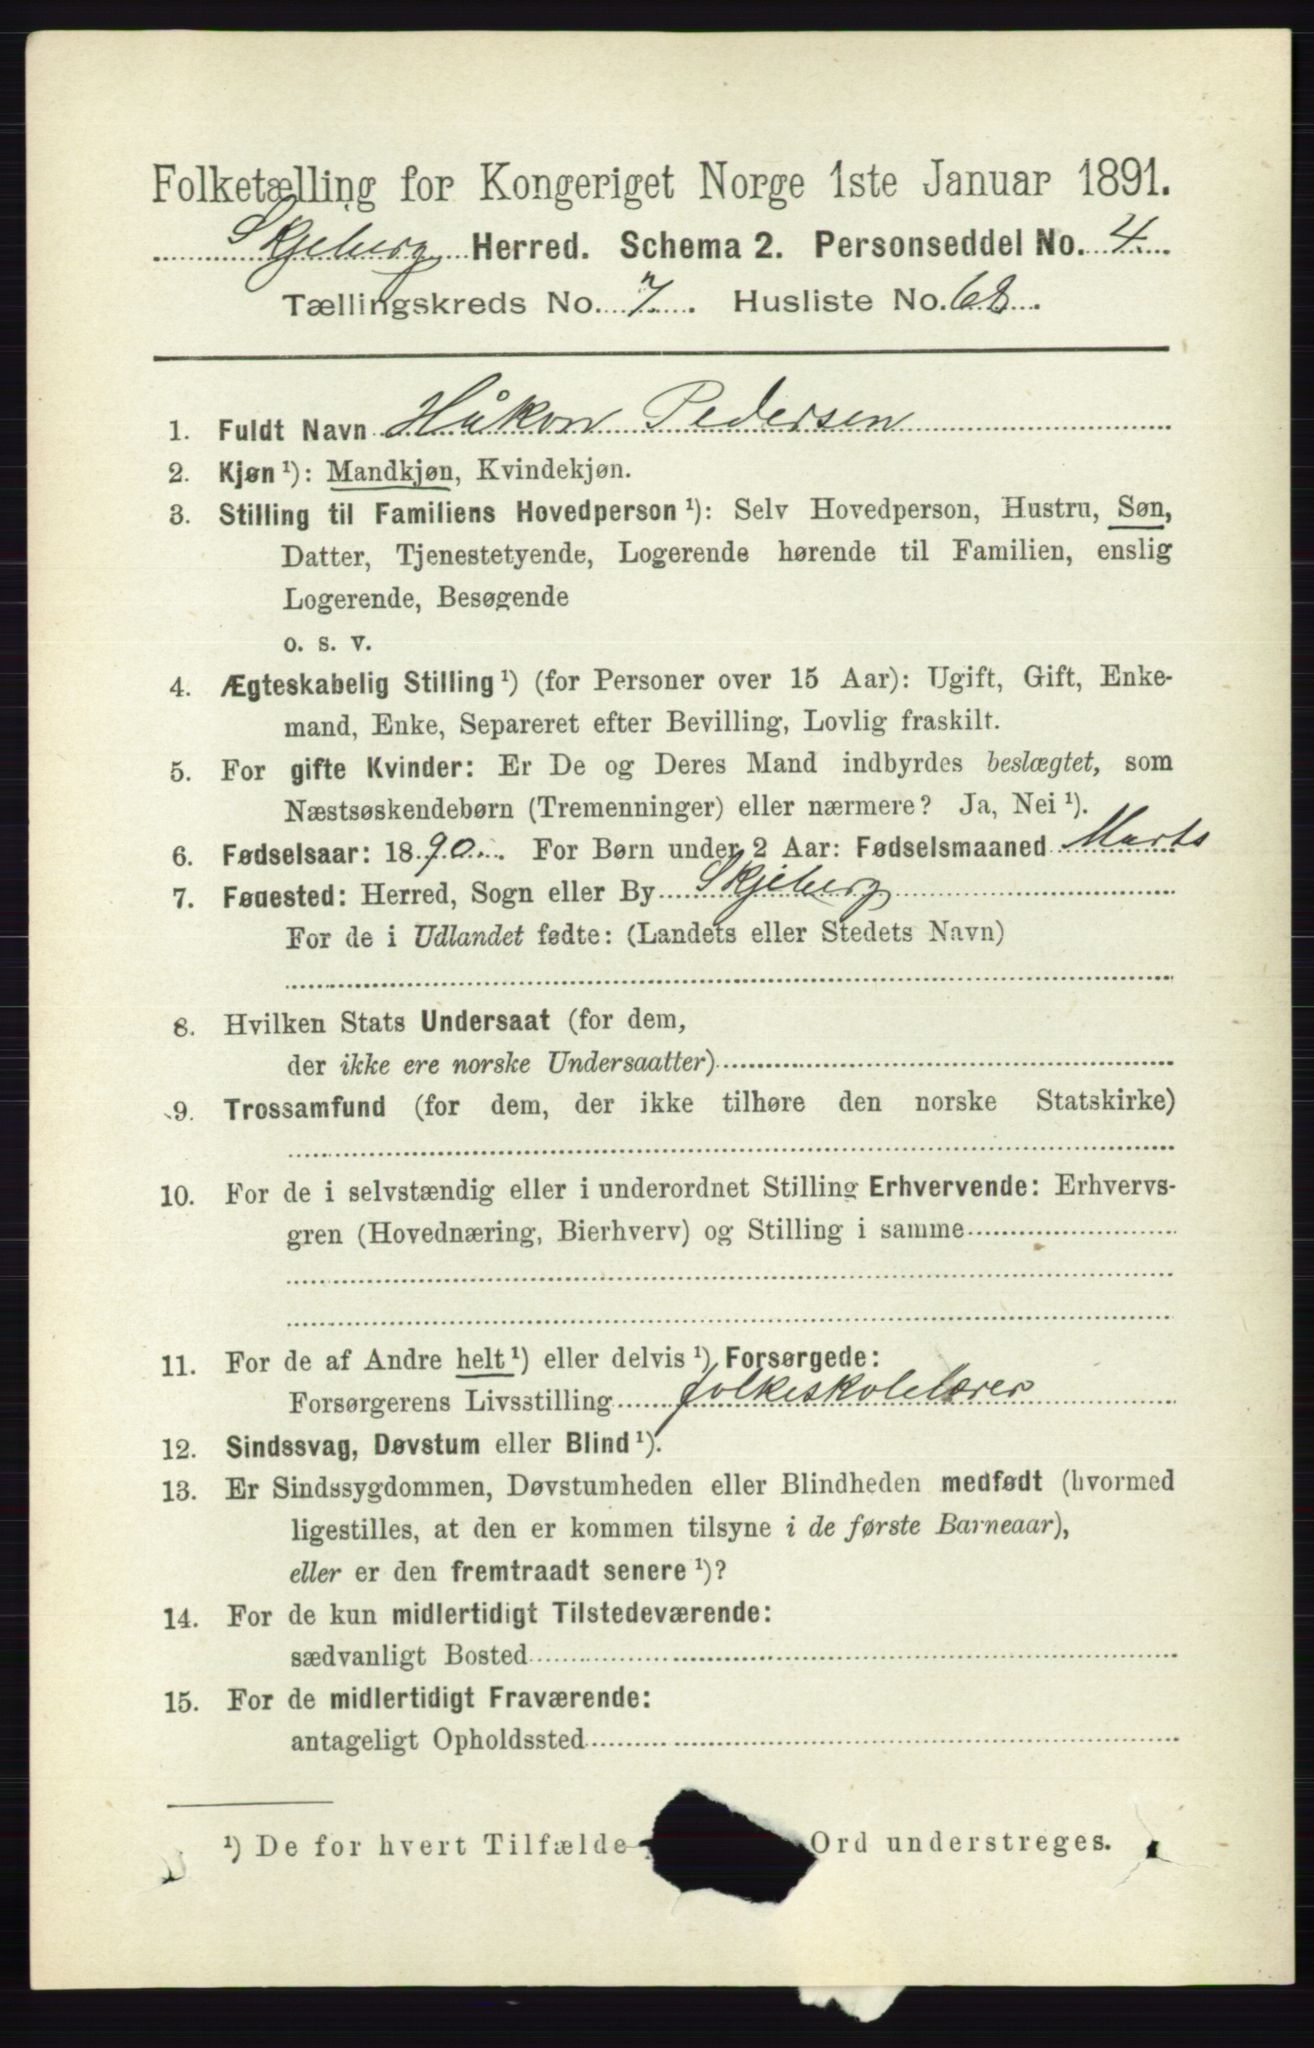 Folketælling for Kongeriget Norge 1ste Januar 1891.
Skjeberg Herred. Schema 2. Personseddel No. 4
Tællingskreds No. 7. Husliste No. 68.
1. Fuldt Navn Håkon Pedersen
2. Kjøn ¹): Mandkjøn, Kvindekjøn.
3. Stilling til Familiens Hovedperson ¹): Selv Hovedperson, Hustru, Søn,
Datter, Tjenestetyende, Logerende hørende til Familien, enslig
Logerende, Besøgende
o. s. v.
4. Ægteskabelig Stilling ¹) (for Personer over 15 Aar): Ugift, Gift, Enke-
mand, Enke, Separeret efter Bevilling, Lovlig fraskilt.
5. For gifte Kvinder: Er De og Deres Mand indbyrdes beslægtet, som
Næstsøskendebørn (Tremenninger) eller nærmere? Ja, Nei ¹).
6. Fødselsaar: 1890. For Børn under 2 Aar: Fødselsmaaned Marts
7. Føuested: Herred, Sogn eller By Skjeberg
For de i Udlandet fødte: (Landets eller Stedets Navn)
8. Hvilken Stats Undersaat (for dem,
der ikke ere norske Undersaatter)
9. Trossamfund (for dem, der ikke tilhøre den norske Statskirke)
10. For de i selvstændig eller i underordnet Stilling Erhvervende: Erhvervs-
gren (Hovednæring, Bierhverv) og Stilling i samme
11. For de af Andre helt ¹) eller delvis ¹) Forsørgede:
Forsørgerens Livsstilling folkeskolelærer
12. Sindssvag, Døvstum eller Blind ¹).
13. Er Sindssygdommen, Døvstumheden eller Blindheden medfødt (hvormed
ligestilles, at den er kommen tilsyne i de første Barneaar),
eller er den fremtraadt senere ¹)?
14. For de kun midlertidigt Tilstedeværende:
sædvanligt Bosted
15. For de midlertidigt Fraværende:
antageligt Opholdssted
¹) De for hvert Tilfælde Ord understreges.